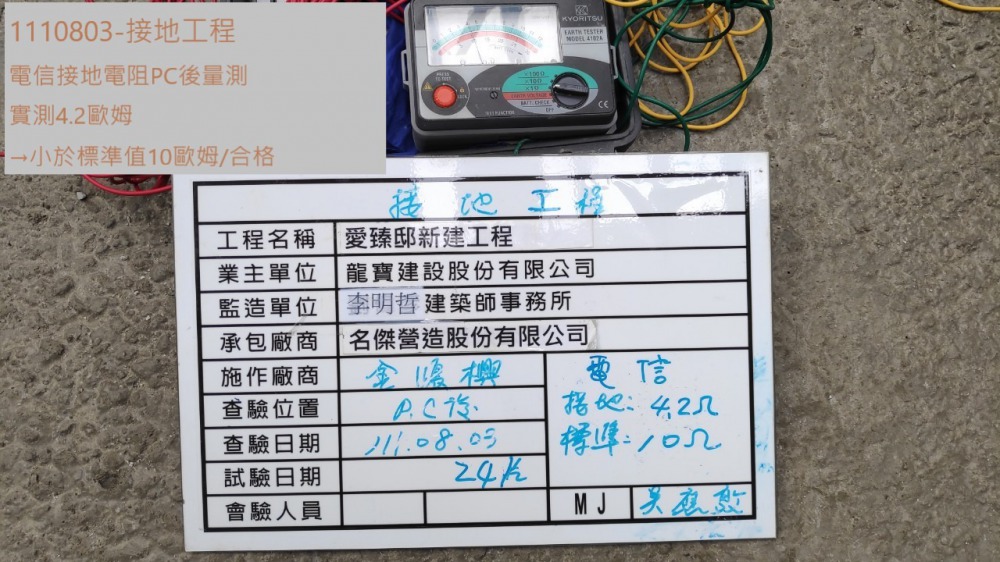 1110803-接地工程
電信接地電阻PC後量測
實測4.2歐姆
→小於標準值10歐姆/合格
KYORITSU
EARTH TESTER
MODEL 4102A
PRESS TO TEST
×100Ω
×10Ω
×1Ω
EARTH VOLTAGE
BATT. CHECK
OFF
CE
接地工程
工程名稱 愛臻邸新建工程
業主單位 龍寶建設股份有限公司
監造單位 李明哲建築師事務所
承包廠商 名傑營造股份有限公司
施作廠商 電信
查驗位置 P.C後 接地:4.2Ω
查驗日期 111.08.03 標準:10Ω
試驗日期
會驗人員 MJ